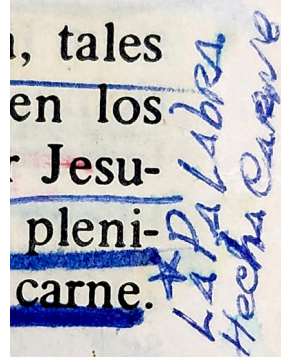 , tales
en los
r Jesu-
pleni-
carne.
*LA PALABRA
Hecha Carne